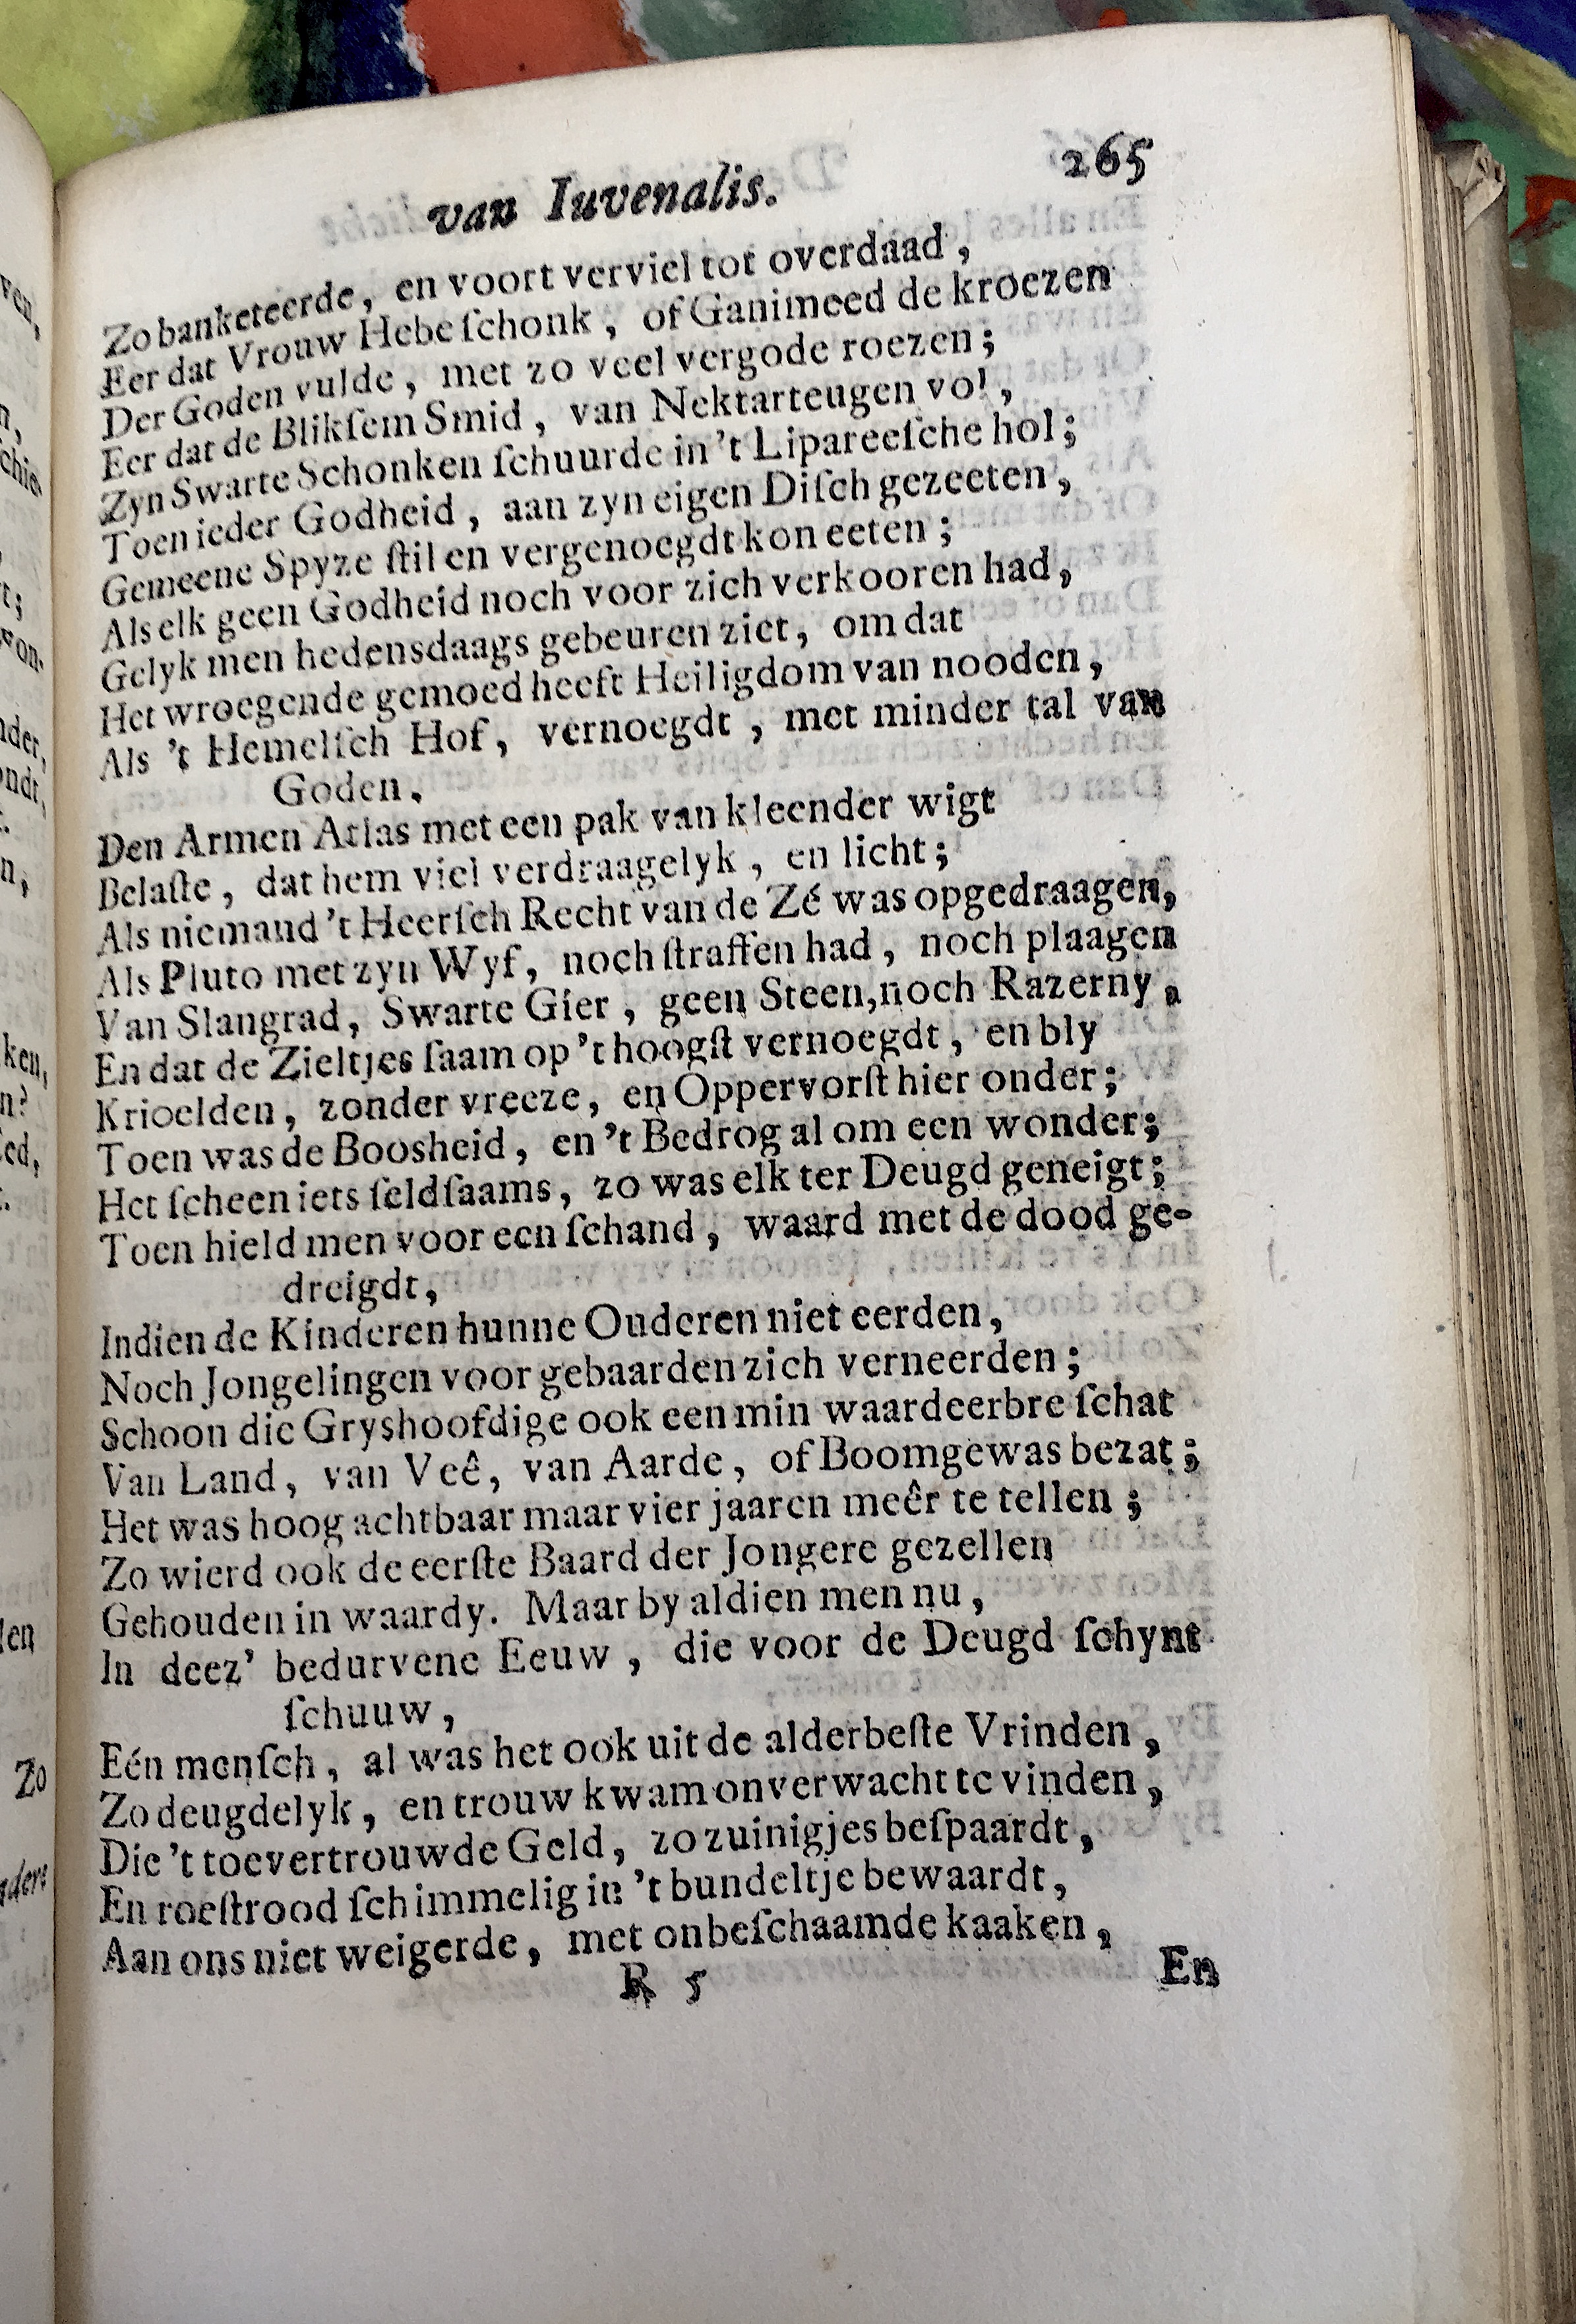 van Iuvenalis. 265
Zo banketeerde, en voort verviel tot overdaad,
Eer dat Vrouw Hebe ſchonk, of Ganimeed de kroezen
Der Goden vulde, met zo veel vergode roezen;
Eer dat de Blikſem Smid, van Nektarteugen vol,
Zyn Swarte Schonken ſchuurde in 't Lipareeſche hol;
Toen ieder Godheid, aan zyn eigen Diſch gezeeten,
Gemeene Spyze ſtil en vergenoegdt kon eeten;
Als elk geen Godheid noch voor zich verkooren had,
Gelyk men hedensdaags gebeuren ziet, om dat
Het wroegende gemoed heeft Heiligdom van nooden,
Als 't Hemelſch Hof, vernoegdt, met minder tal van
Goden.
Den Armen Atlas met een pak van kleender wigt
Belaſte, dat hem viel verdraagelyk, en licht;
Als niemand 't Heerſch Recht van de Zé was opgedraagen,
Als Pluto met zyn Wyf, noch ſtraffen had, noch plaagen
Van Slangrad, Swarte Gier, geen Steen, noch Razerny,
En dat de Zieltjes ſaam op 't hoogſt vernoegdt, en bly
Krioelden, zonder vreeze, en Oppervorſt hier onder;
Toen was de Boosheid, en 't Bedrog al om een wonder;
Het ſcheen iets ſeldſaams, zo was elk ter Deugd geneigt;
Toen hield men voor een ſchand, waard met de dood ge-
dreigdt,
Indien de Kinderen hunne Ouderen niet eerden,
Noch Jongelingen voor gebaarden zich verneerden;
Schoon die Gryshoofdige ook een min waardeerbre ſchat
Van Land, van Veê, van Aarde, of Boomgewas bezat;
Het was hoog achtbaar maar vier jaaren meêr te tellen;
Zo wierd ook de eerſte Baard der Jongere gezellen
Gehouden in waardy. Maar by aldien men nu,
In deez' bedurvene Eeuw, die voor de Deugd ſchynt
ſchuuw,
Eén menſch, al was het ook uit de alderbeſte Vrinden,
Zo deugdelyk, en trouw kwam onverwacht te vinden,
Die 't toevertrouwde Geld, zo zuinigjes beſpaardt,
En roeſtrood ſchimmelig in 't bundeltje bewaardt,
Aan ons niet weigerde, met onbeſchaamde kaaken,
R 5 En